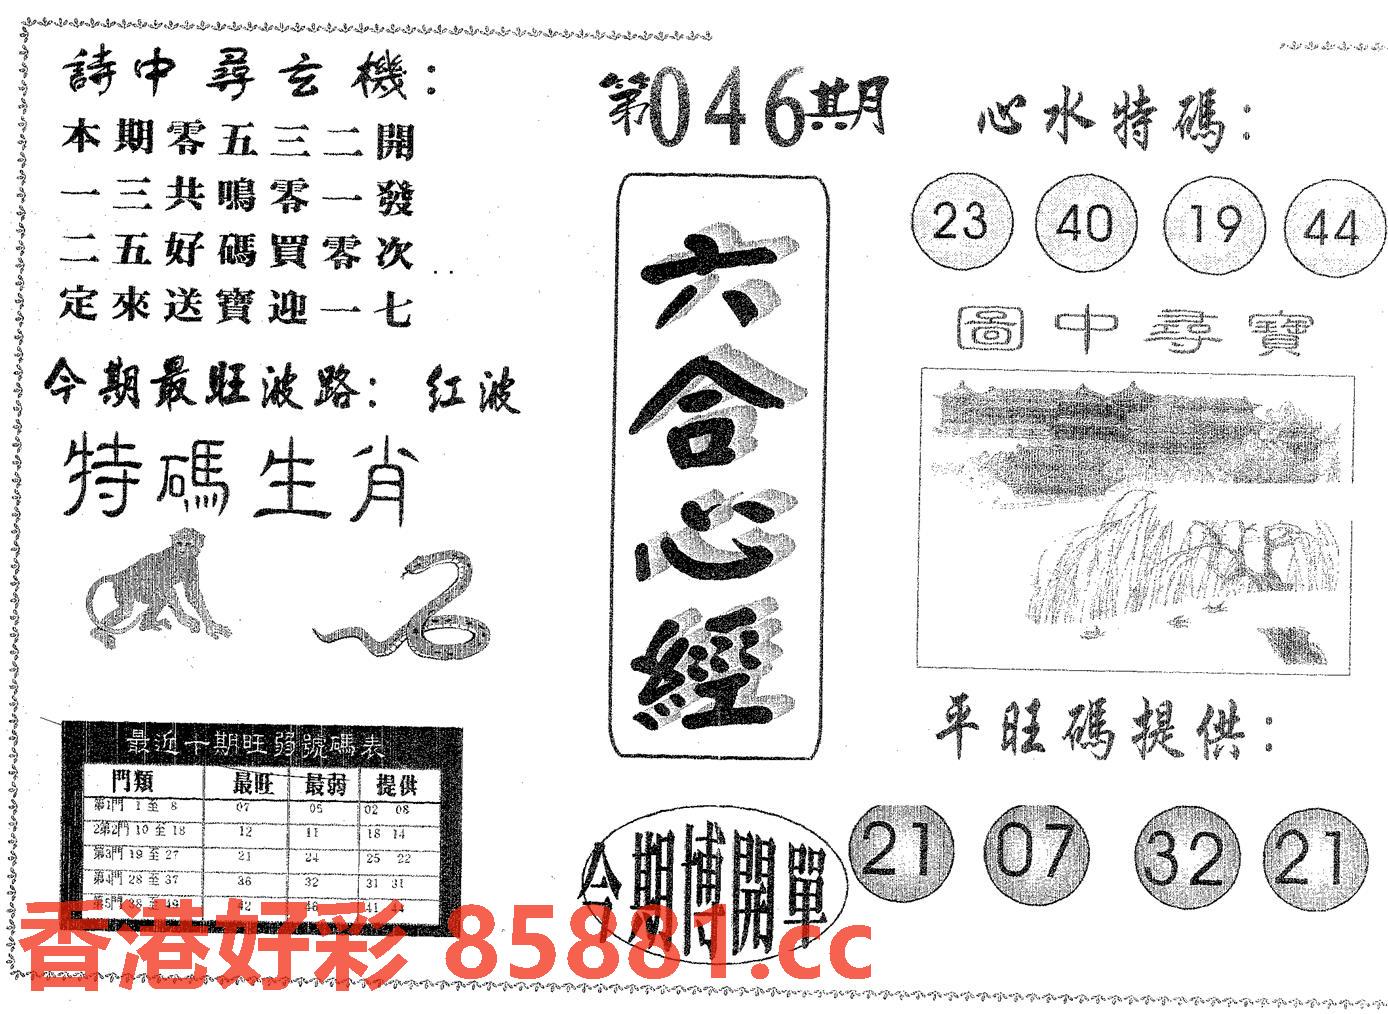 詩中尋玄機：
本期零五三二開
一三共鳴零一發
二五好碼買零次
定來送寶迎一七
今期最旺波路：红波
特碼生肖
最近十期旺弱號碼表
門類 最旺 最弱 提供
第1門 1 至 8 07 05 02 08
2第2門 10 至 18 12 11 18 14
第3門 19 至 27 21 24 25 22
第4門 28 至 37 36 32 31 31
第5門 38 至 49 42 46 41 44
第046期
六合心經
今期博開單
心水特碼：
23 40 19 44
圖中尋寶
平旺碼提供：
21 07 32 21
香港好彩 85881.cc